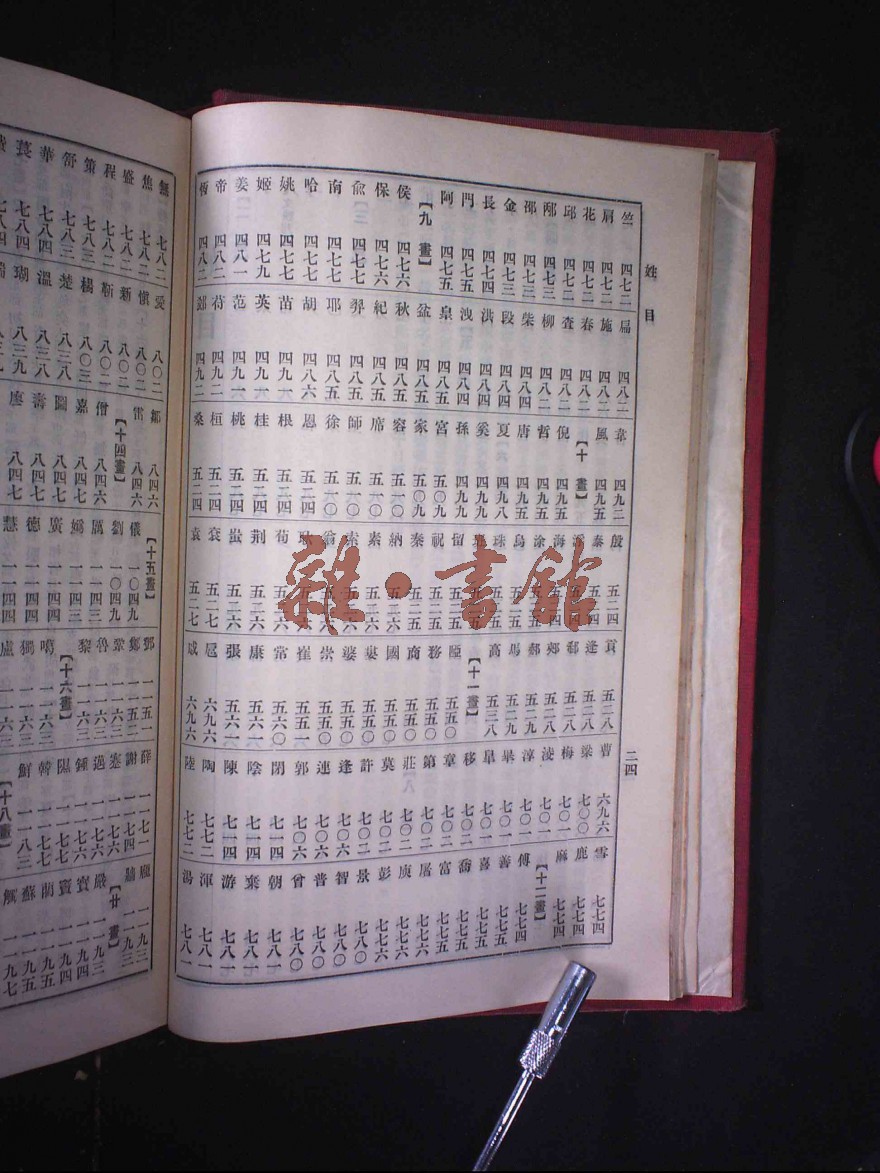 姓目
二四
竺 四七二
肩 四七二
花 四七二
邱 四七二
邴 四七三
邵 四七三
金 四七三
長 四七四
門 四七五
阿 四七五
【九畫】
侯 四七六
保 四七六
俞 四七七
南 四七七
哈 四七七
姚 四七七
姬 四七九
姜 四八一
帝 四八二
恆 四八二
扁 四八二
施 四八二
春 四八二
查 四八二
柳 四八二
柴 四八四
段 四八四
洪 四八四
洩 四八四
皇 四八五
盆 四八五
秋 四八五
紀 四八五
羿 四八五
耶 四八五
胡 四八六
苗 四九一
英 四九一
范 四九一
苻 四九二
郅 四九二
韋 四九二
風 四九五
【十畫】
倪 四九五
哲 四九五
唐 四九五
夏 四九八
奚 四九九
孫 四九九
宮 五〇九
家 五〇九
容 五一〇
席 五一〇
師 五一〇
徐 五一〇
恩 五二四
根 五二四
桂 五二四
桃 五二四
桓 五二四
桑 五二四
殷 五二四
泰 五二四
海
涂
烏
珠
留
祝 五二五
秦 五二五
納
素
索
翁
耿
荀 五二六
荆 五二六
蚩 五二六
袞 五二七
袁 五二七
貢 五二八
逢 五二八
郗 五二八
郟 五二八
郝 五二九
馬 五二九
高 五三八
【十一畫】
五五〇
務 五五〇
商 五五〇
國 五五〇
婁 五五〇
婆 五五〇
崇 五五〇
崔 五五一
常 五六〇
康 五六一
張 五六一
扈 六九六
戚 六九六
曹 六九六
梁 七〇〇
梅 七〇一
淩 七〇一
淳 七〇一
畢 七〇一
皐 七〇一
移 七〇一
章 七〇一
第 七〇二
莊 七〇二
莫 七〇二
許 七〇二
逢 七〇六
連 七〇六
郭 七〇六
閉 七一四
陰 七一四
陳 七一四
陶 七七二
陸 七七二
雪 七七四
鹿 七七四
麻 七七四
【十二畫】
傅 七七四
善 七七五
喜 七七五
喬 七七五
富 七七五
屠 七七六
庾 七七六
彭 七七六
景 七八〇
智 七八〇
普 七八〇
曾 七八〇
朝 七八一
棄 七八一
游 七八一
渾 七八一
湯 七八一
無 七八二
焦 七八二
盛 七八二
程 七八二
策 七八三
舒 七八三
華 七八四
萇 七八四
愛 八〇二
愼 八〇二
新 八〇二
靳 八〇二
楊 八〇三
楚 八三八
溫 八三八
瑚 八三九
鄒 八四六
雷 八四六
【十四畫】
僧 八四六
嘉 八四七
圖 八四七
壽 八四七
廖 八四七
【十五畫】
儀 一〇四九
劉 一〇四九
厲 一一四三
嬌 一一四三
廣 一一四四
德 一一四四
慧 一一四四
鄧 一一五一
鄭 一一五二
鞏 一一六三
魯 一一六三
黎 一一六三
【十六畫】
噶 一一六三
獨 一一六三
盧 一一六三
薛 一一七一
謝 一一七四
蹇 一一七六
鍾 一一七六
韓 一一七七
鮮 一一八三
【十八畫】
龐 一一九三
【廿畫】
嚴 一一九三
寶 一一九四
竇 一一九四
蘭 一一九五
蘇 一一九五
雜·書館